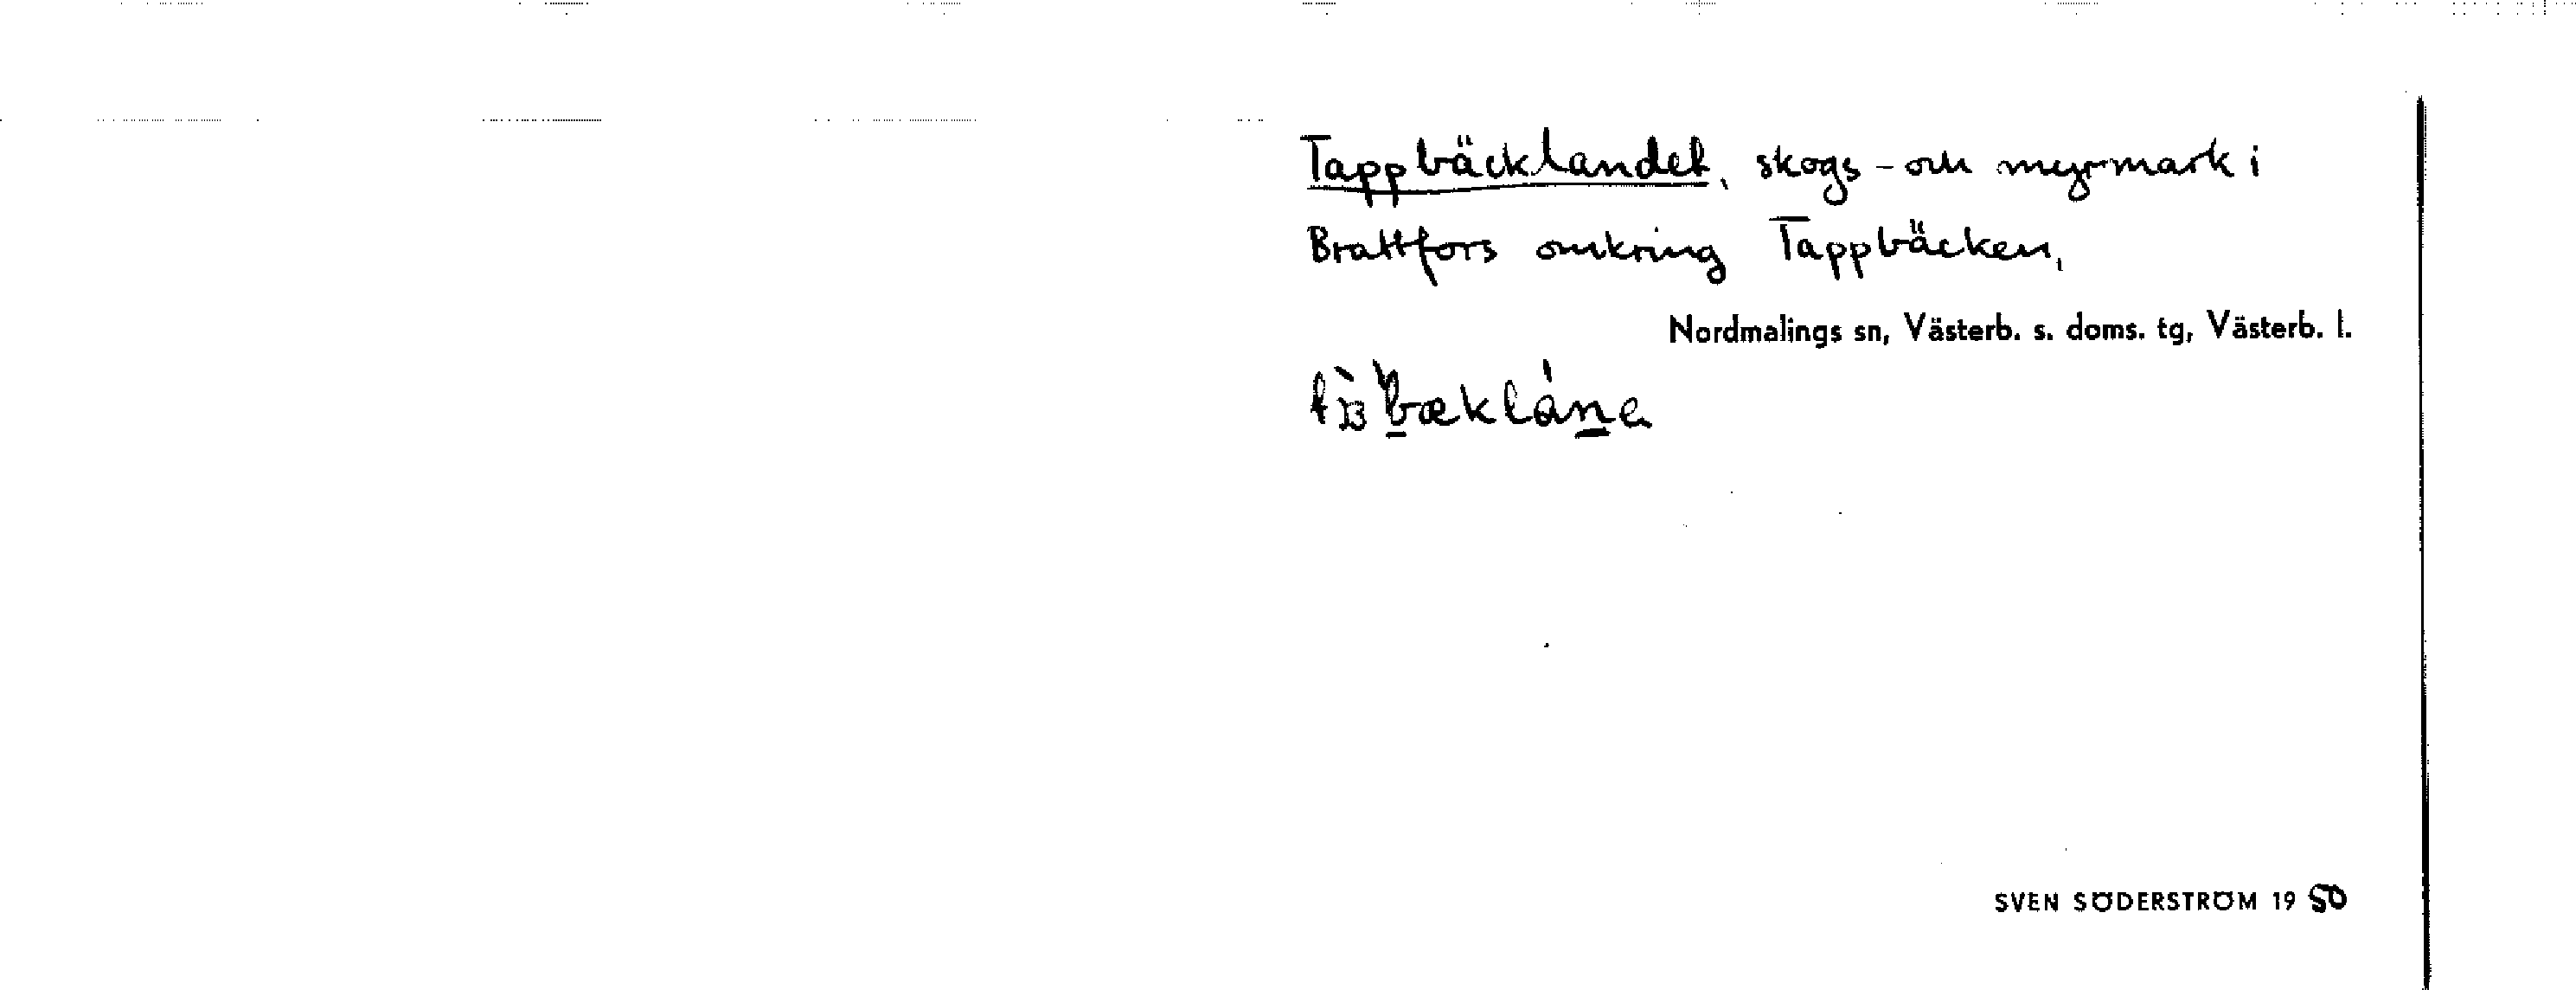 Tappbäcklandet, skogs- och myrmark i
Brattfors omkring Tappbäcken,
Nordmalings sn, Västerb. s. doms. tg, Västerb. l.
SVEN SÖDERSTRÖM 1950